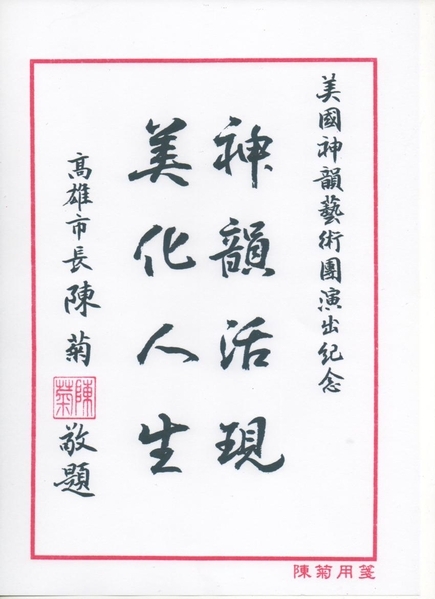 美國神韻藝術團演出紀念
神韻活現
美化人生
高雄市長陳菊
陳菊
敬題
陳菊用箋